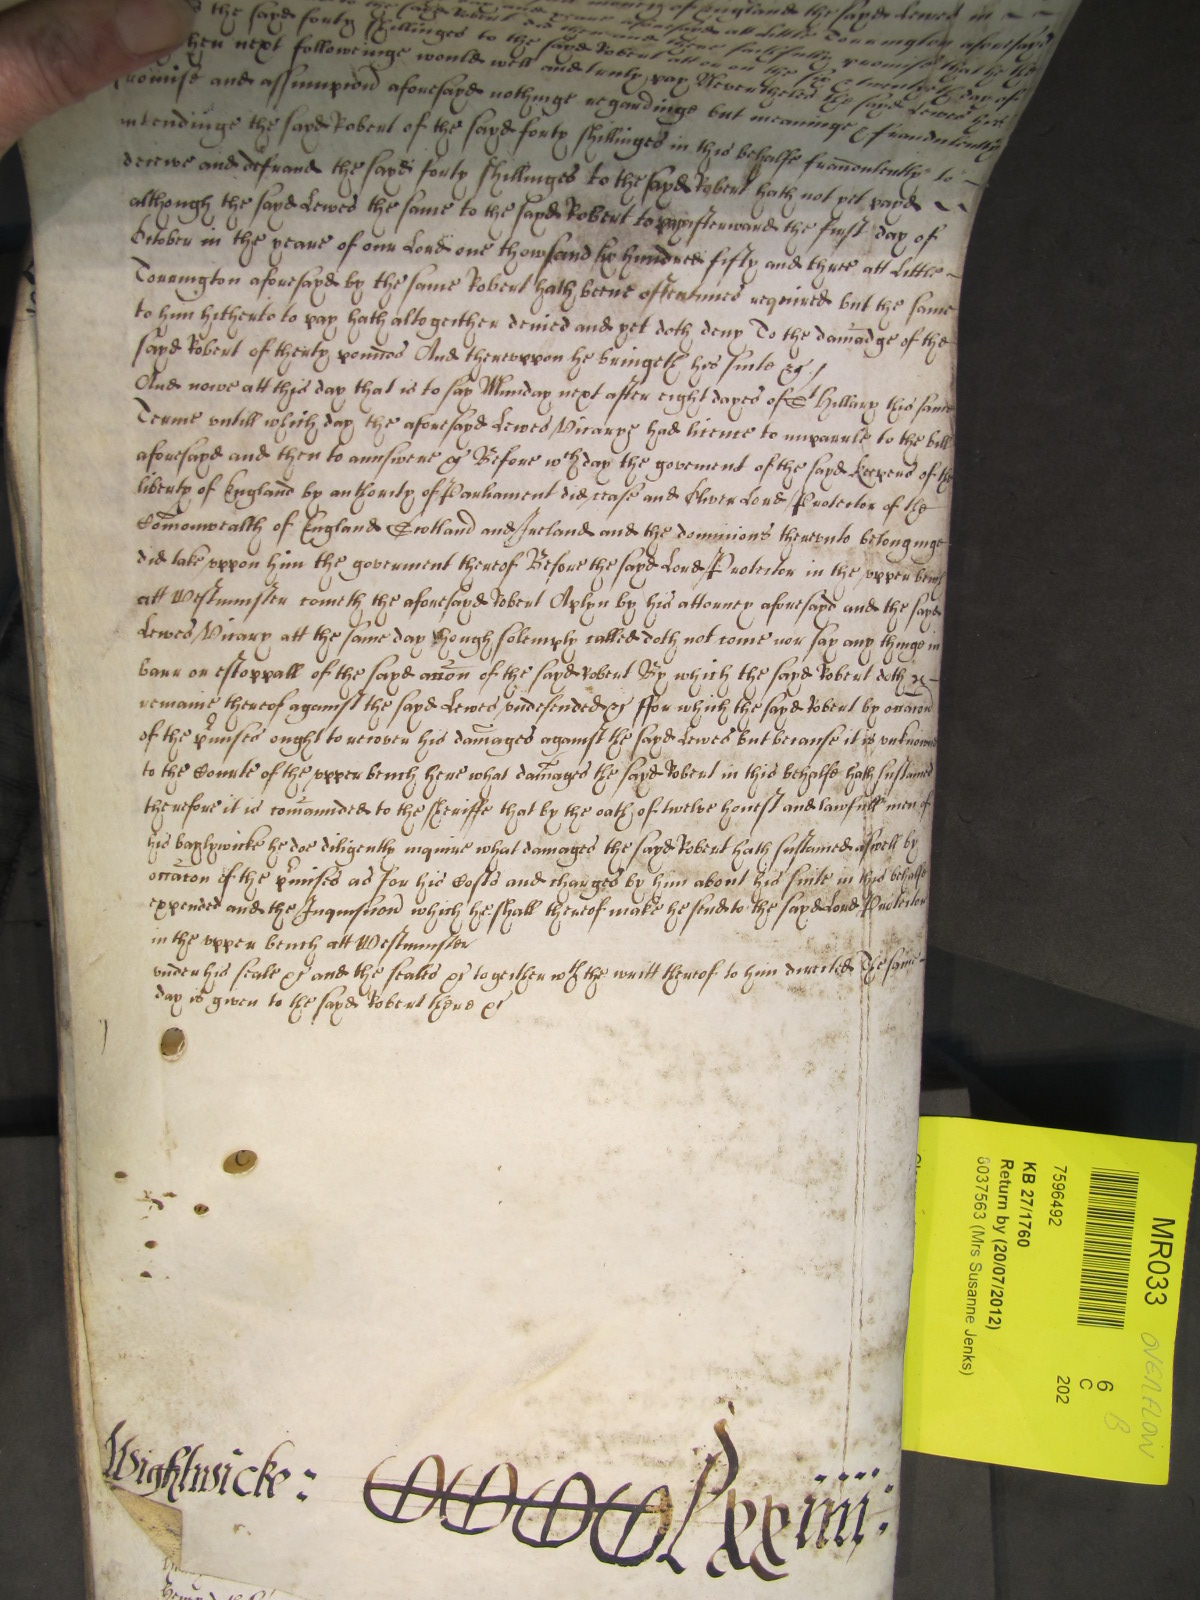 money of England the sayd Lewes in
the sayd forty shillinges to the sayd Robert att or on the
then next followeinge would well and truly pay Neverthelesse the sayd Lewes his
promise and assumpcion aforesayd nothinge regardinge but meaninge & fraudulently
intendinge the sayd Robert of the sayd forty shillinges in this behalfe fraudulently to
deceive and defraude the sayd forty shillinges to the sayd Robert hath not yet payd
although the sayd Lewes the same to the sayd Robert to pay afterwards the first day of
October in the yeare of our Lord one thowsand six hundred fifty and three att Little
Torrington aforesayd by the same Robert hath beene oftentimes required but the same
to him hitherto to pay hath altogeither denied and yet doth deny To the damadge of the
sayd Robert of therty pounds And thereuppon he bringeth his suite &c
And nowe att this day that is to say Munday next after eight dayes of St Hillary this same
Terme untill which day the aforesayd Lewes Vicarye had licence to imparle to the bill
aforesayd and then to annswere &c Before wch day the goverment of the sayd keepers of the
liberty of England by authority of Parliament did cease and Oliver Lord Protector of the
Comonwealth of England Scotland and Ireland and the dominions thereunto belonginge
did take uppon him the goverment thereof Before the sayd Lord Protector in the upper bench
att Westminster cometh the aforesayd Robert Aplyn by his attorney aforesayd and the sayd
Lewes Vicary att the same day though solemply called doth not come nor say any thinge in
barr or estoppall of the sayd accon of the sayd Robert By which the sayd Robert doth
remaine thereof against the sayd Lewes undefended &c ffor which the sayd Robert by occacon
of the pmises ought to recover his damages against the sayd Lewes but because it is unknowne
to the Courte of the upper bench here what damages the sayd Robert in this behalfe hath sustained
therefore it is comannded to the sheriffe that by the oath of twelve honest and lawfull men of
his baylywicke he doe diligently inquire what damages the sayd Robert hath sustained aswell by
occacon of the pmises as for his Costs and charges by him about his suite in this behalfe
expended and the Inquisicion which he shall thereof make he send to the sayd Lord Protector
in the upper bench att Westminster
under his seale &c and the seales &c togeither wth the writt thereof to him directed The same
day is given to the sayd Robert there &c
Wightwicke:
CCCCLxxiiii:
MR033
OVERFLOW
B
6
C
202
7596492
KB 27/1760
Return by (20/07/2012)
6037563 (Mrs Susanne Jenks)